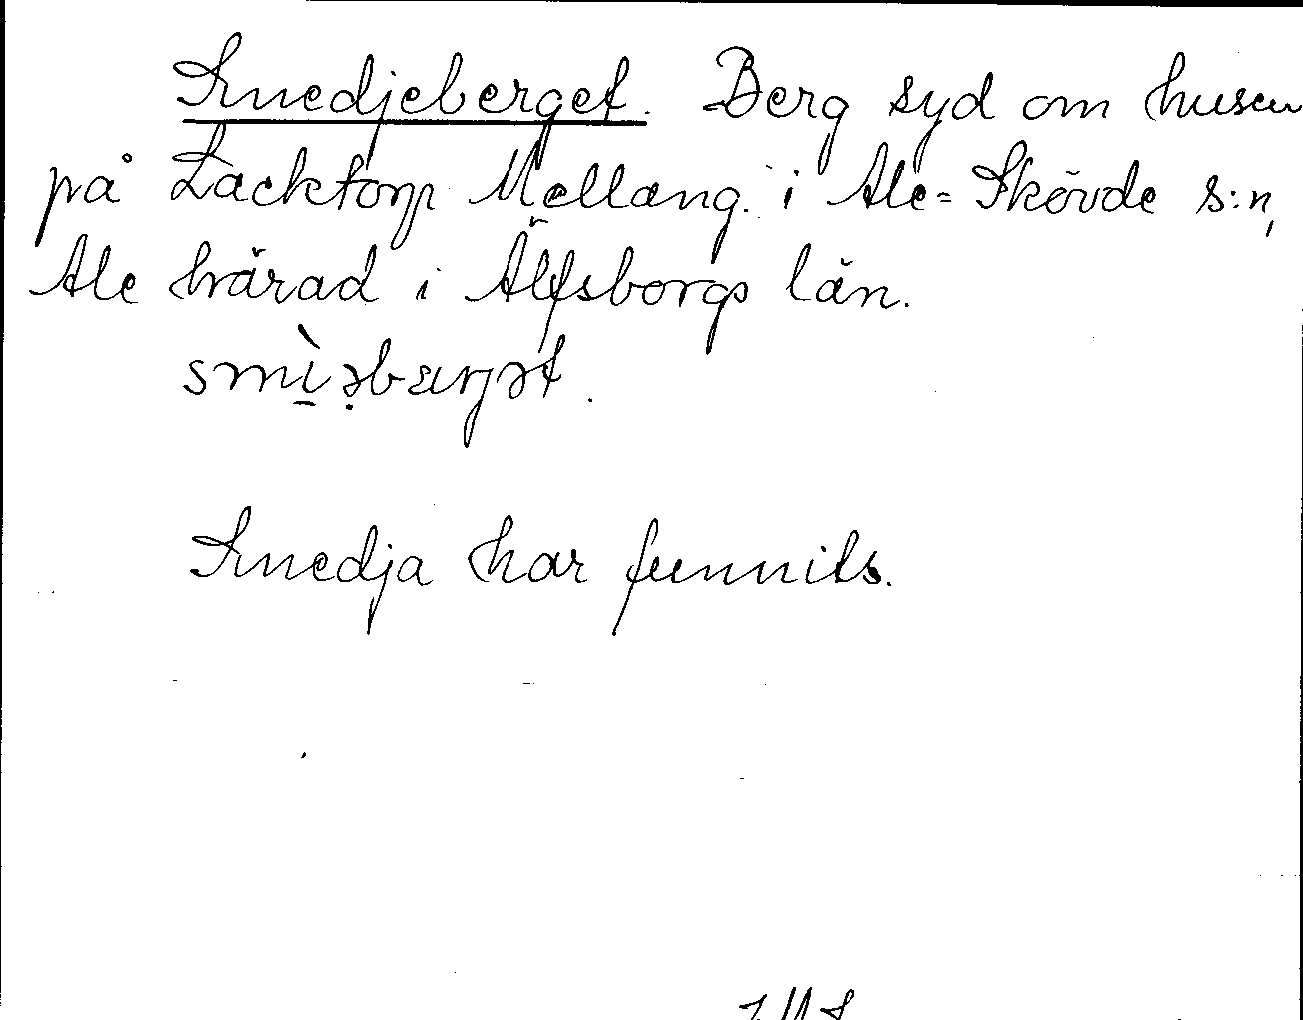 Smedjeberget. Berg syd om husen
på Lacktorp Mellang. i Ale-Skövde s:n,
Ale härad i Älfsborgs län.
smìəbærjət.
Smedja har funnits.